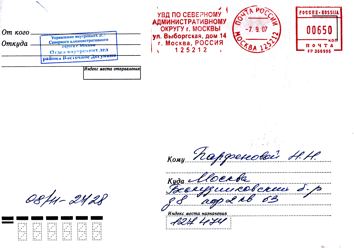 УВД ПО СЕВЕРНОМУ
АДМИНИСТРАТИВНОМУ
ОКРУГУ г. МОСКВЫ
ул. Выборгская, дом 14
г. Москва, РОССИЯ
125212
ПОЧТА РОССИИ
-7.9.07
МОСКВА 125212
РОССИЯ-ROSSIA
00650
ПОЧТА
От кого
Откуда
Управление внутренних дел
Северного административного
округа г. Москвы
Отдел внутренних дел
района Восточное Дегунино
Индекс места отправления
Кому Парфеновой Н.Н.
Куда Москва
Бескудниковский б-р
д 8 кв 63
Индекс места назначения
127474